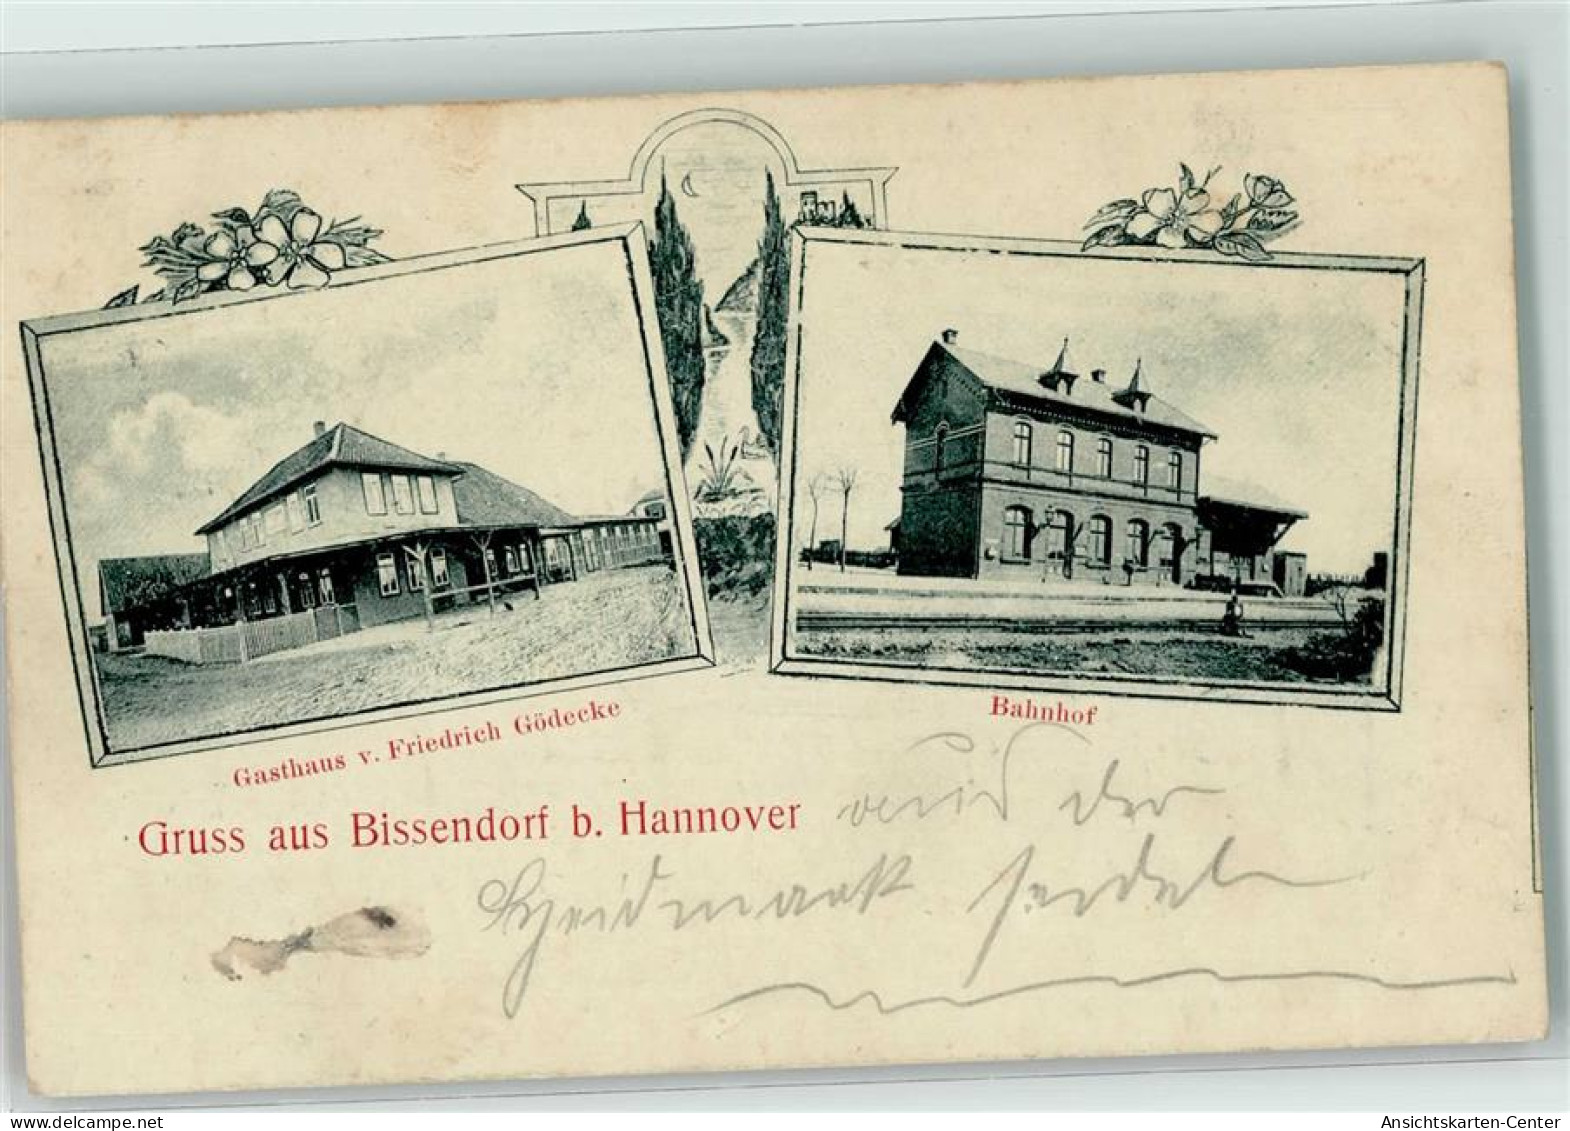 Gasthaus v. Friedrich Gödecke
Bahnhof
Gruss aus Bissendorf b. Hannover
aus der
sendet
www.delcampe.net
Ansichtskarten-Center